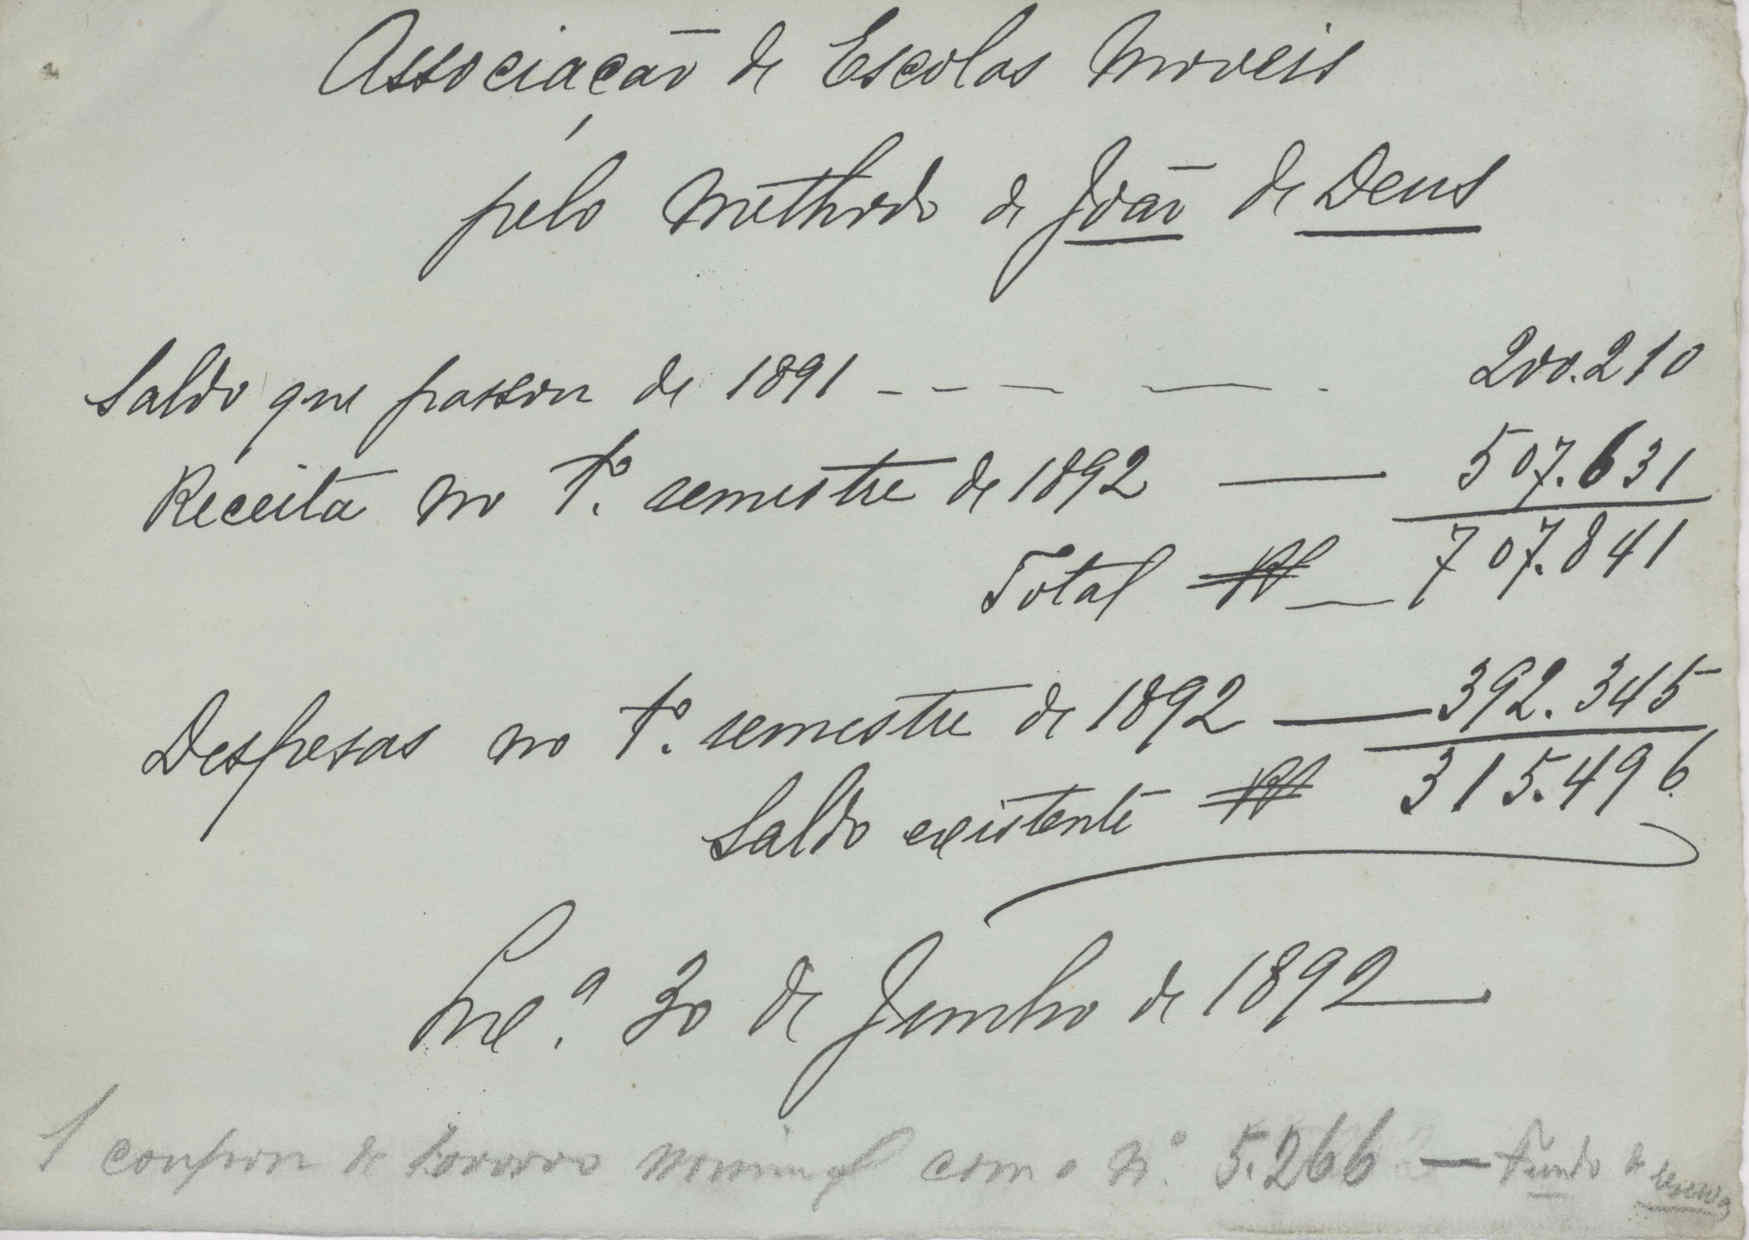 Associação de Escolas Moveis
pelo Methodo de João de Deus
Saldo que passou de 1891 - - — — . 200.210
Receita no 1º semestre de 1892 — 507.631
Total Rs — 707.841
Despesas no 1º semestre de 1892 — 392.345
Saldo existente Rs 315.496
Lxª. 30 de Junho de 1892
1 coupon de nominal com o nº. 5.266 — Fundo de reserva